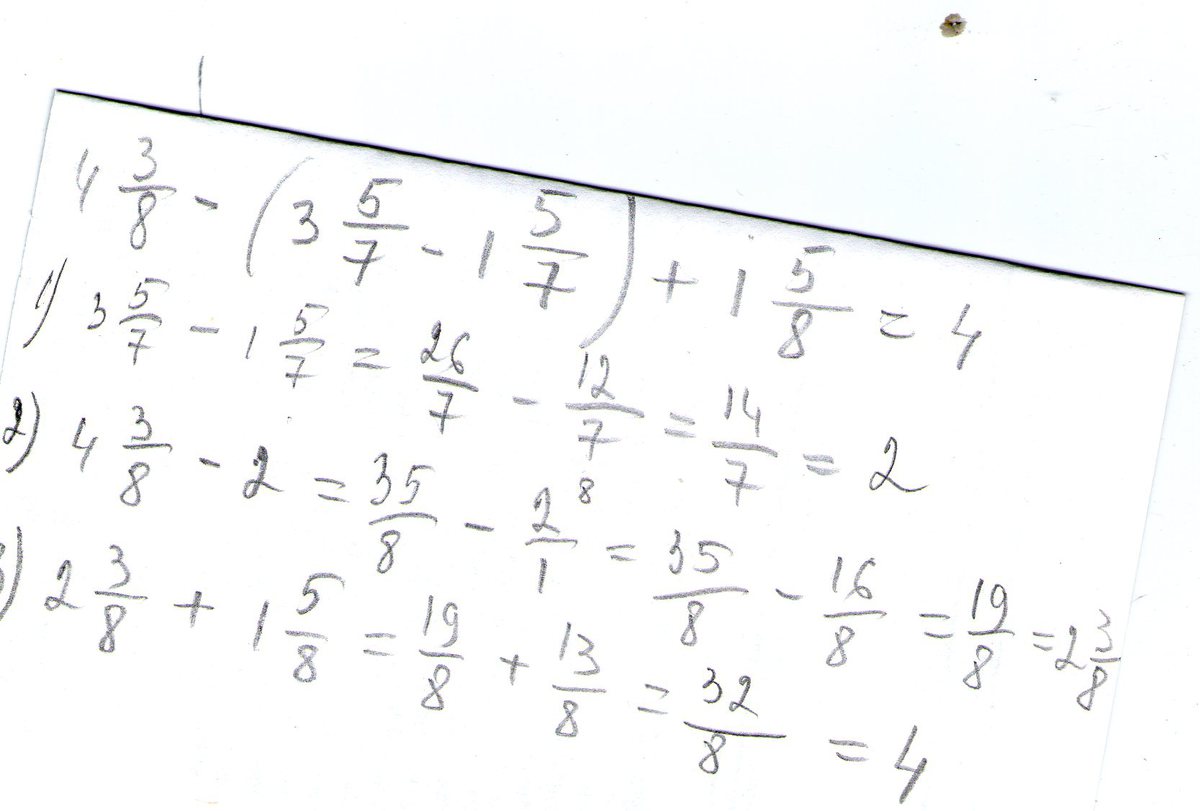 4 3/8 - (3 5/7 - 1 5/7) + 1 5/8 = 4
1) 3 5/7 - 1 5/7 = 26/7 - 12/7 = 14/7 = 2
2) 4 3/8 - 2 = 35/8 - 2/1 8 = 35/8 - 16/8 = 19/8 = 2 3/8
) 2 3/8 + 1 5/8 = 19/8 + 13/8 = 32/8 = 4